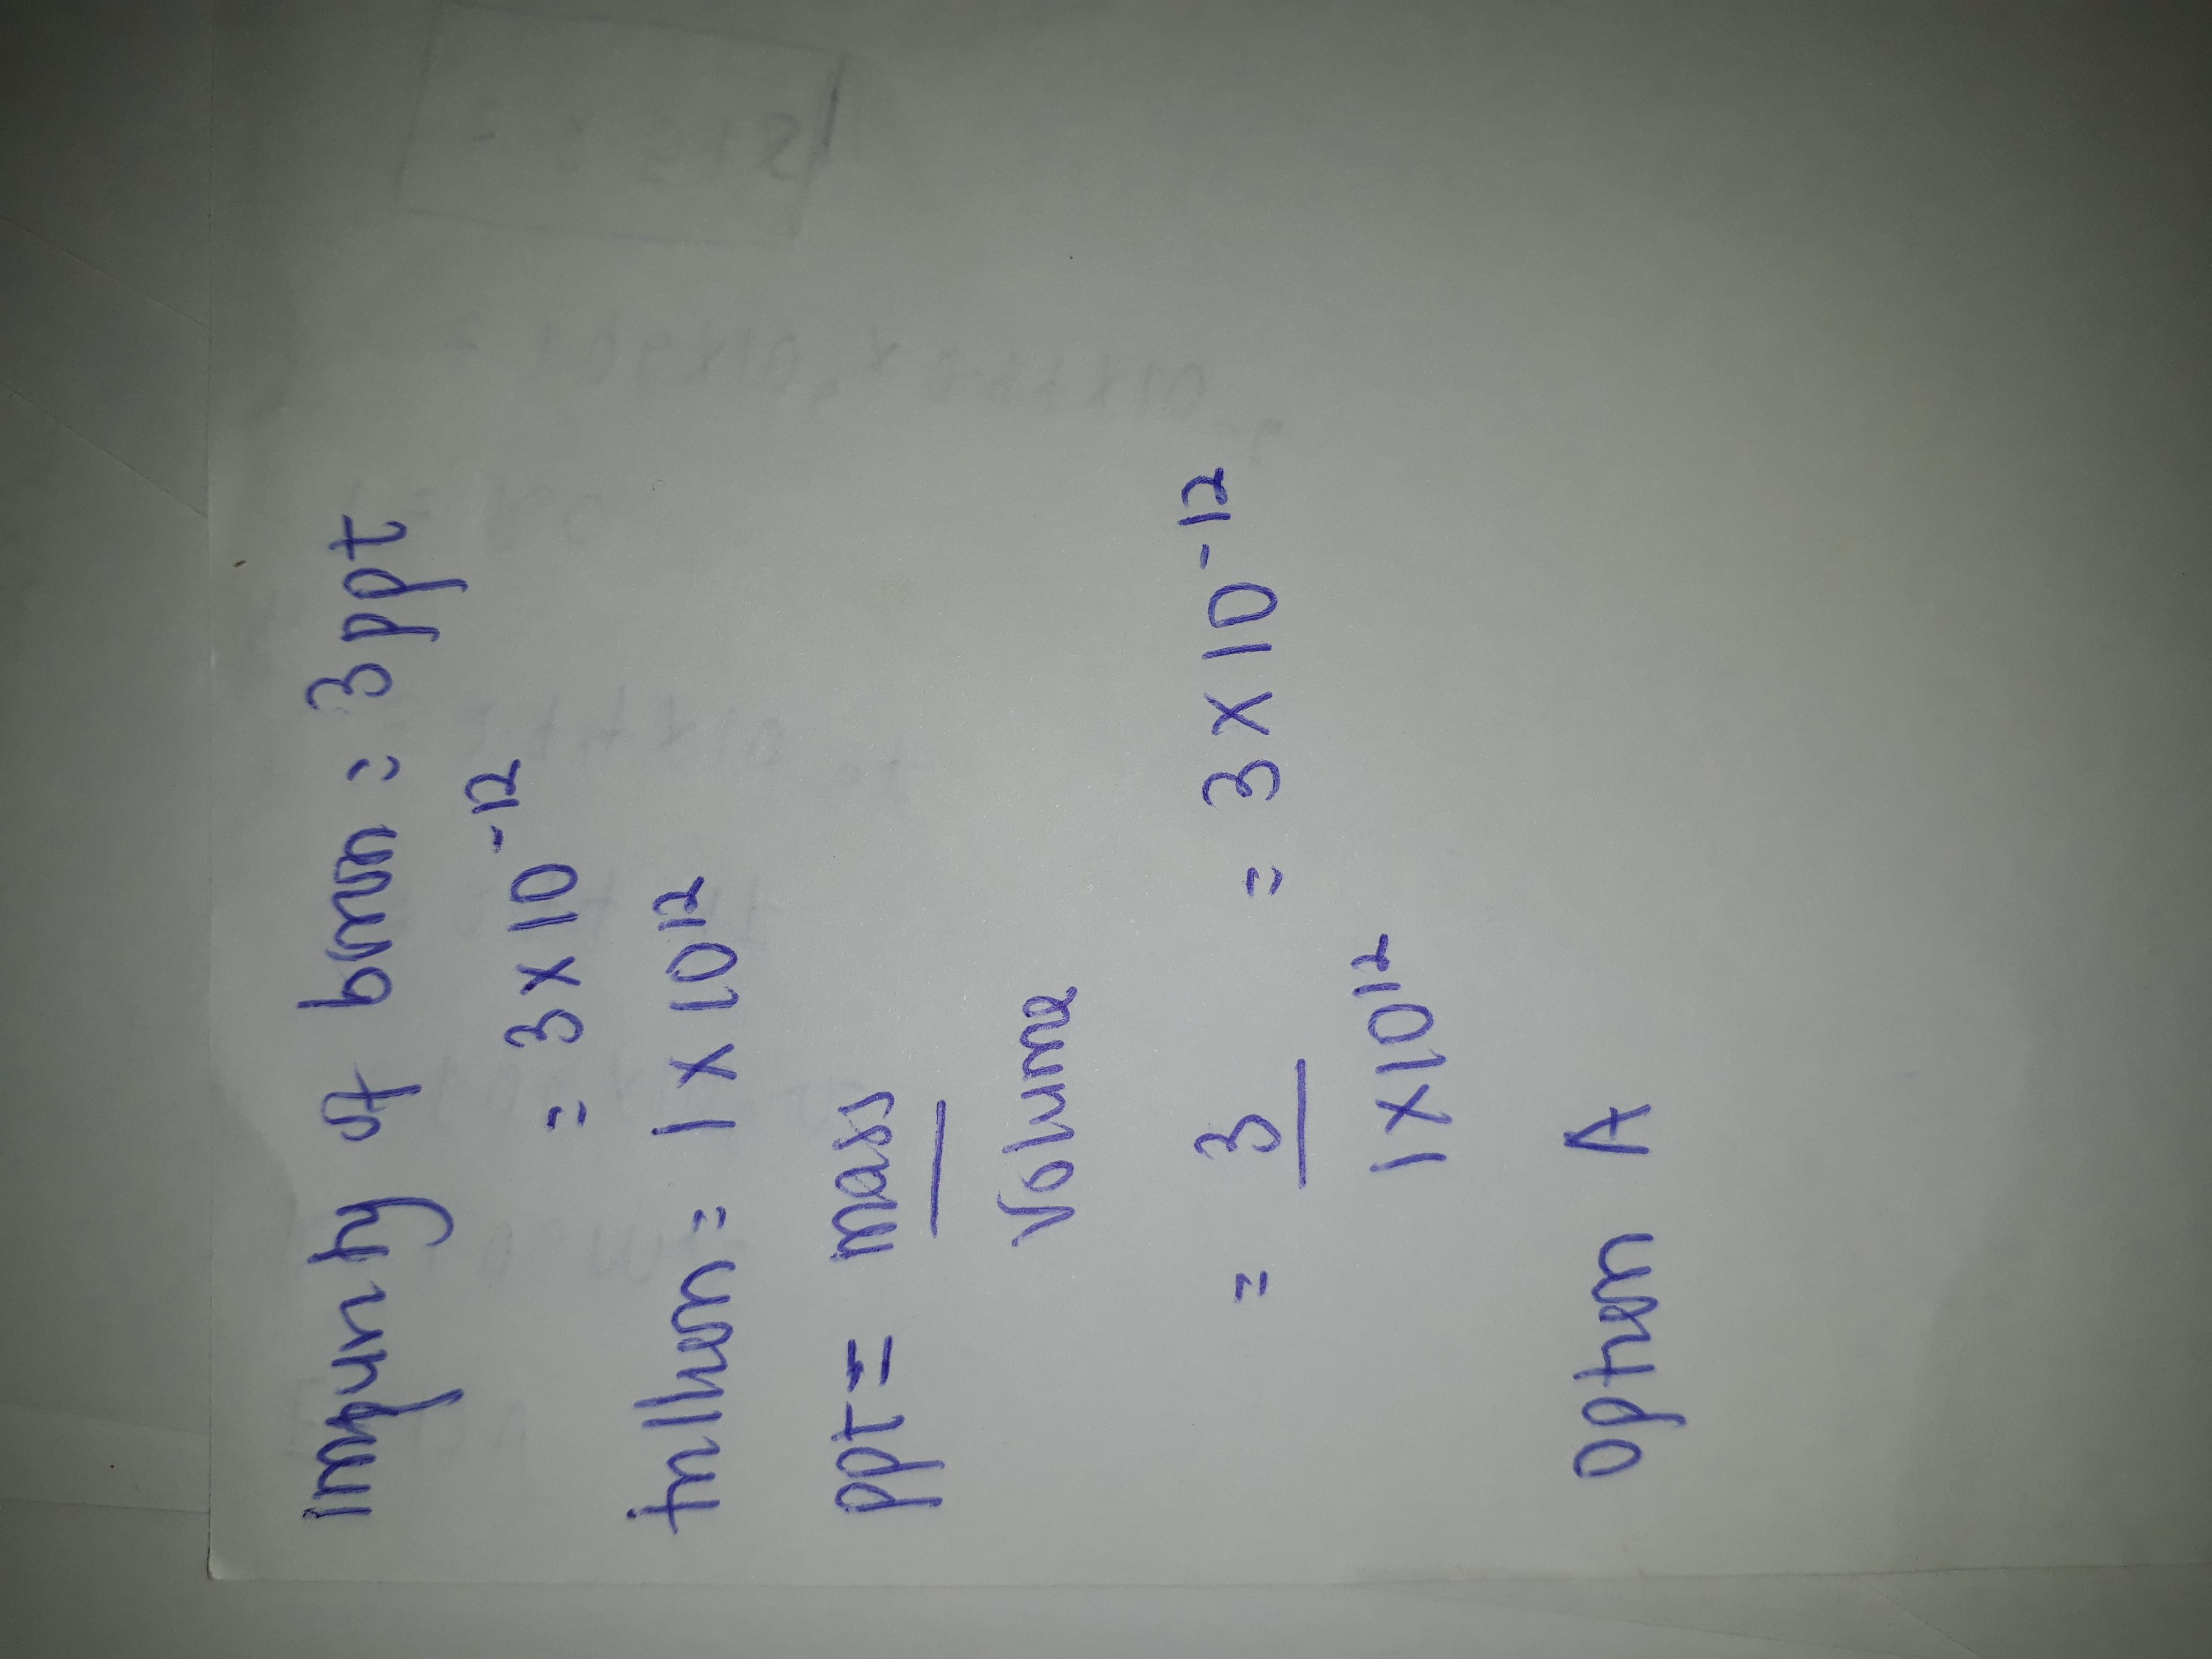 impurity of boron = 3 ppt
= 3 x 10^-12
trillion = 1 x 10^12
ppt = mass
Volume
= 3 = 3 x 10^-12
1 x 10^12
option A